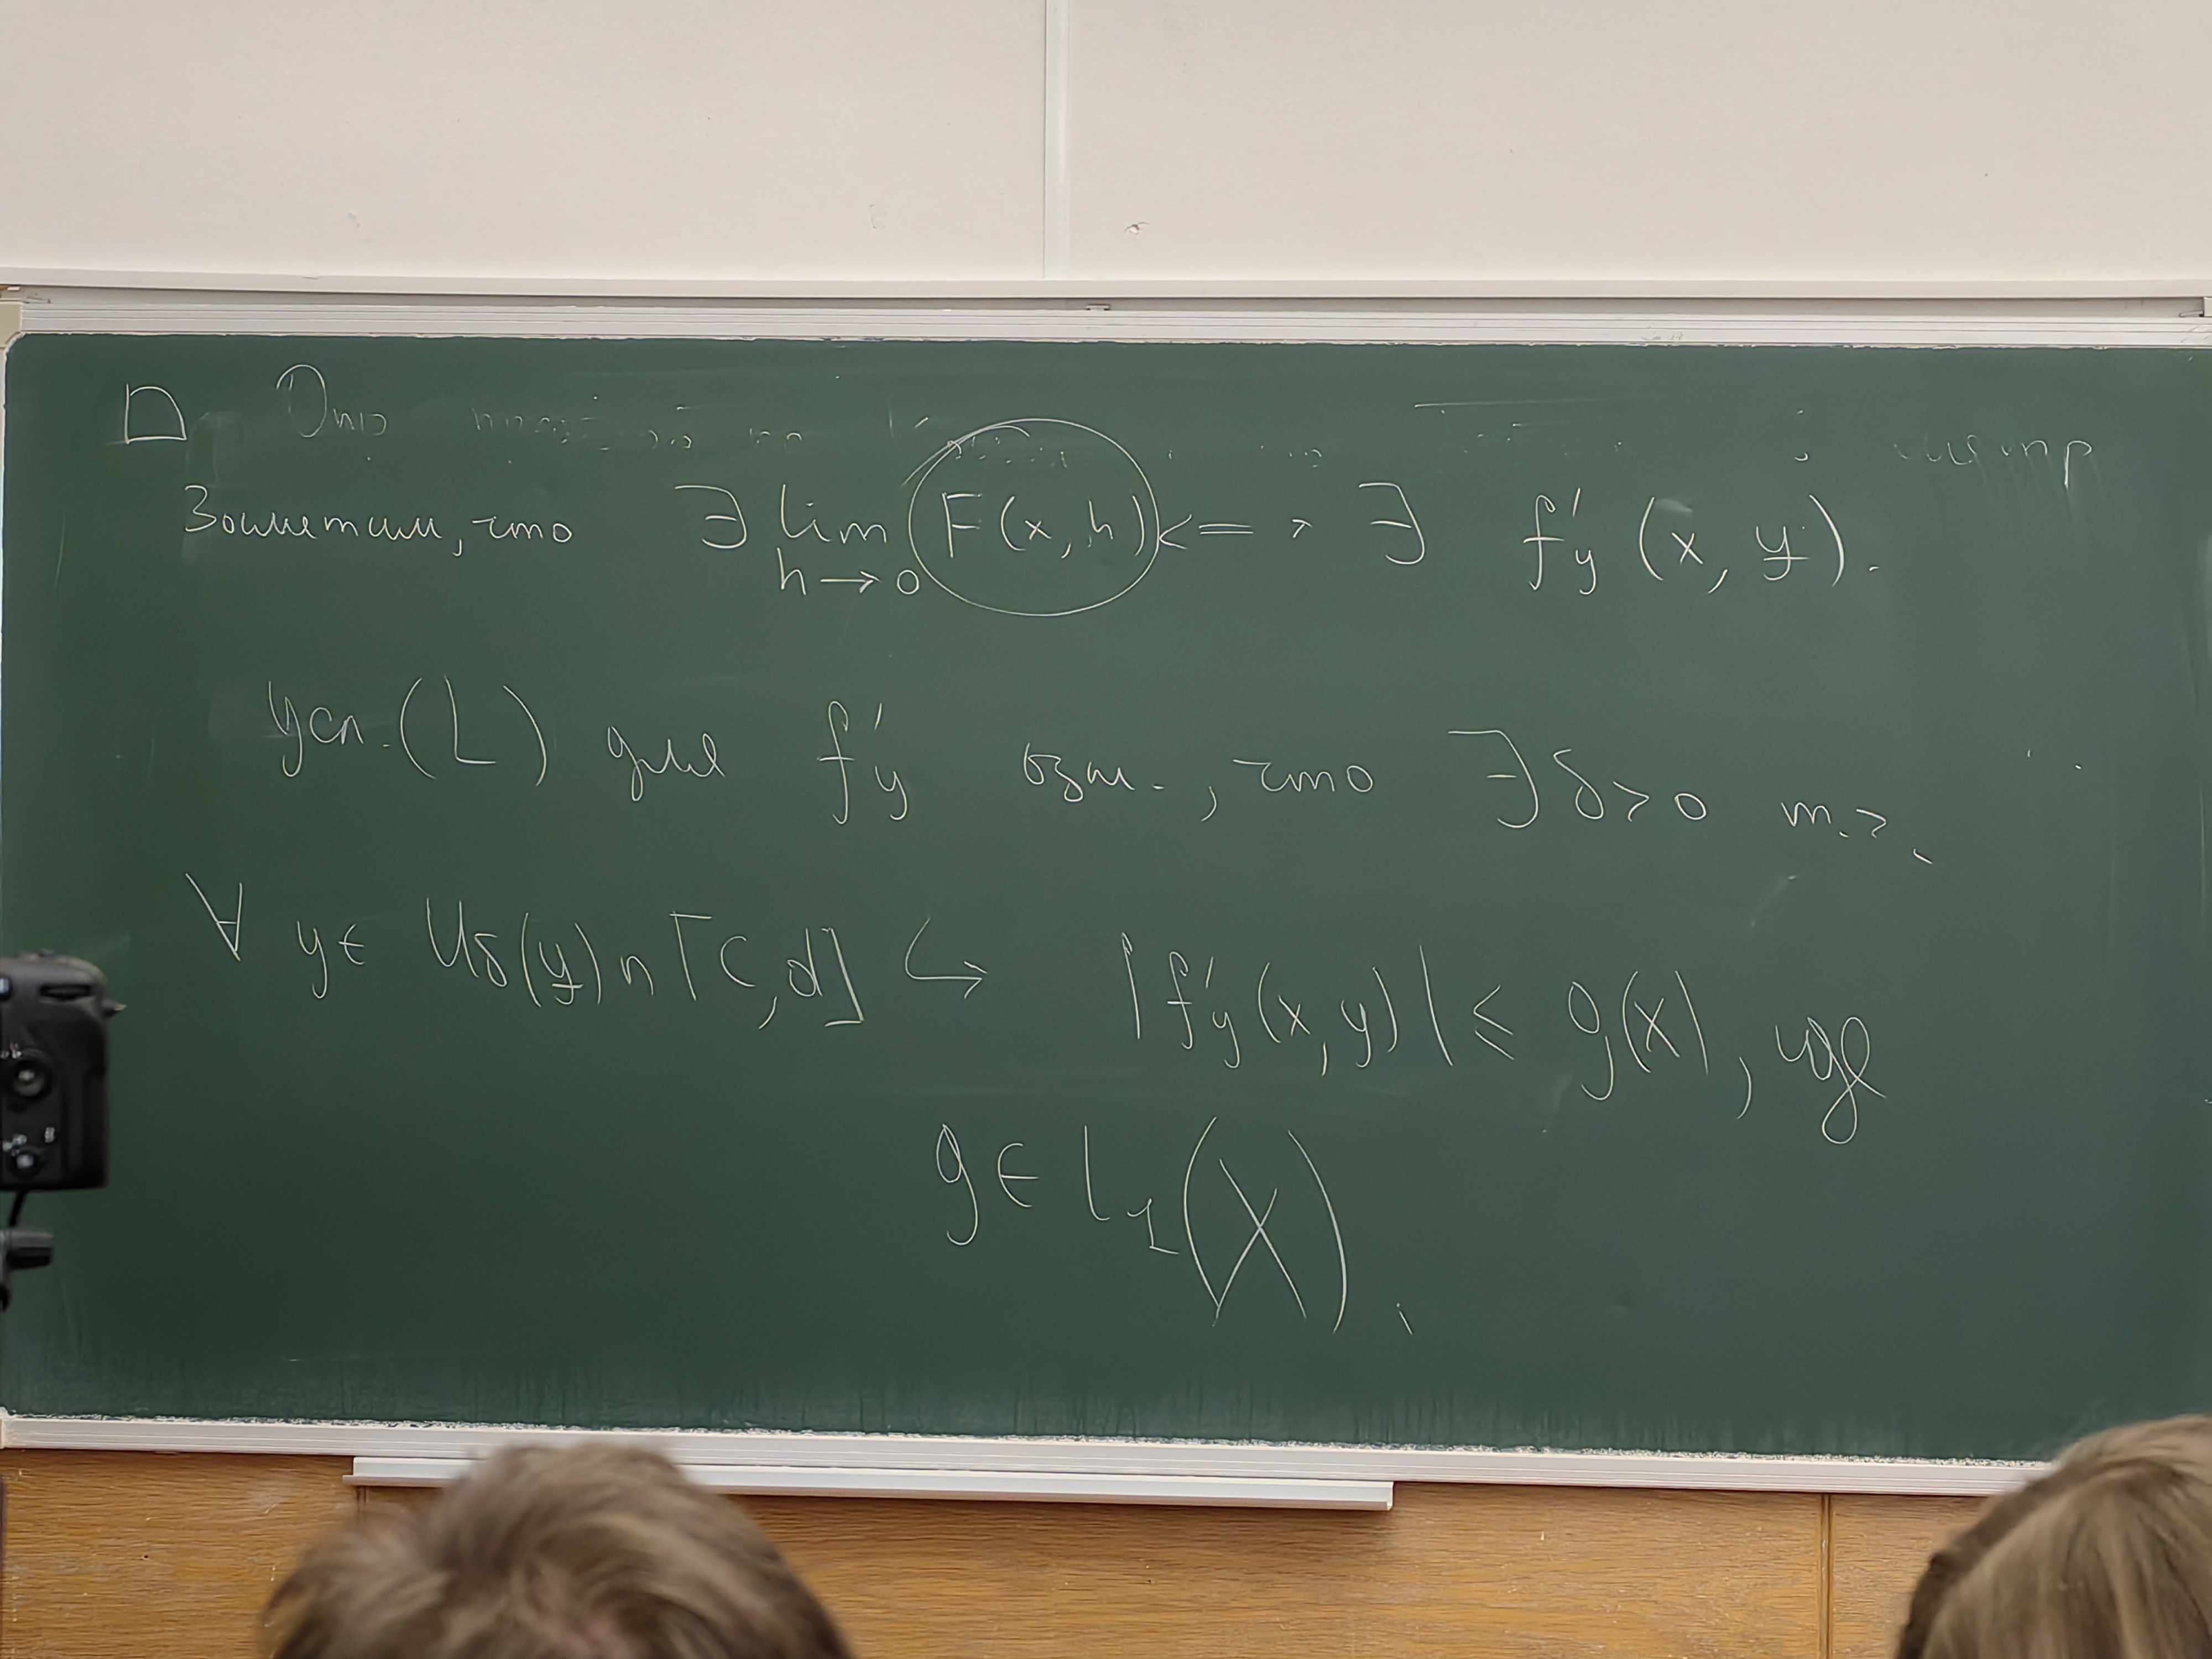 Заметим, что ∃ lim F(x, h) <=> ∃ f'y (x, y).
h → 0
Усл. (L) для f'y озн., что ∃ δ > 0 т.ч.
∀ y ∈ Uδ(y) ∩ [c, d] ↪ |f'y(x, y)| ≤ g(x), где
g ∈ L1(X).